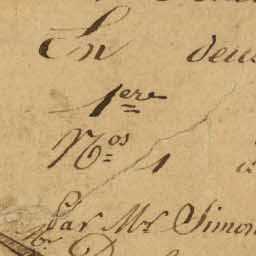 En deu
1ere
Nos 1
Par Mr Simon